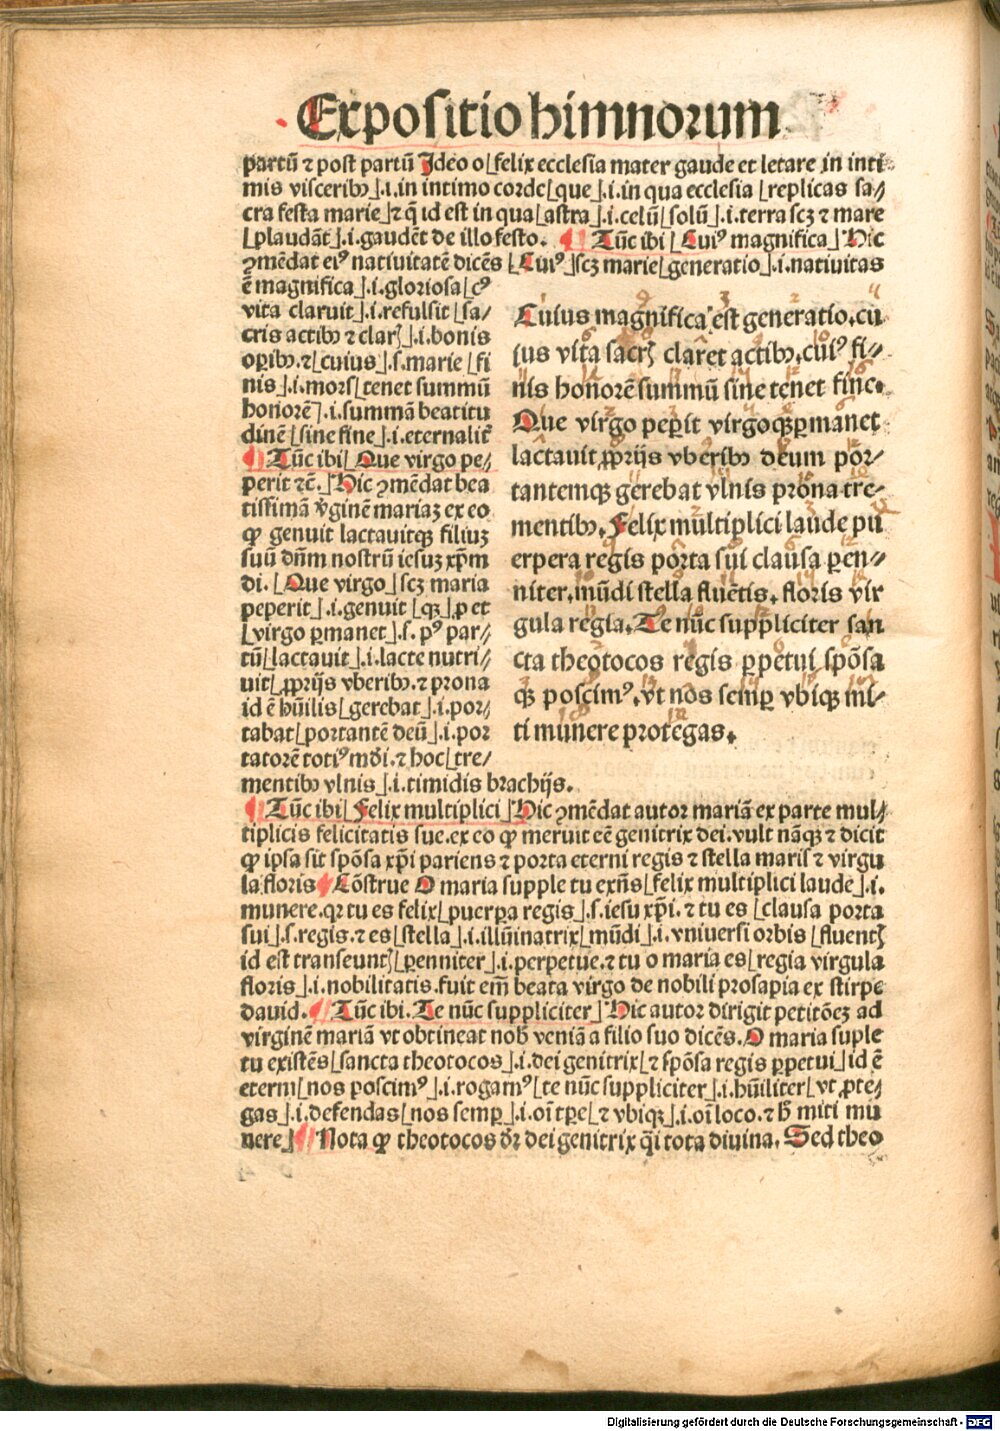 Expositio himnorum
partū ⁊ post partū Ideo o⌊felix ecclesia mater gaude et letare in inti⸗
mis visceribꝰ⌋.i.in intimo corde⌊que⌋.i.in qua ecclesia ⌊replicas sa⸗
cra festa marie⌋⁊ q̄ id est in qua⌊astra⌋.i.celū⌊solū⌋.i.terra scꝫ ⁊ mare
⌊plaudāt⌋.i.gaudēt de illo festo. ¶ Tūc ibi ⌊Cuiꝰ magnifica⌋ Hic
ꝯmēdat eiꝰ natiuitatē dicēs ⌊Cuiꝰ⌋scꝫ marie⌊generatio⌋.i.natiuitas
ē magnifica⌋.i.gloriosa⌊cꝰ
vita claruit⌋.i.refulsit⌊sa⸗
cris actibꝰ ⁊ clarꝫ⌋.i.bonis
oꝑibꝰ.⁊⌊cuius⌋.s.marie⌊fi
nis⌋.i.mors⌊tenet summū
honorē⌋.i.summā beatitu
dinē⌊sine fine⌋.i.eternalit̄
¶ Tūc ibi⌊Que virgo pe⸗
perit ⁊c̄.⌋Hic ꝯmēdat bea
tissimā v̄ginē mariaꝫ ex eo
ꝙ genuit lactauitqꝫ filiuꝫ
suū dn̄m nostrū iesuꝫ xp̄m
di. ⌊Que virgo⌋scꝫ maria
peperit⌋.i.genuit ⌊qꝫ⌋.p et
⌊virgo ꝑmanet⌋.s. pꝰ par⸗
tū⌊lactauit⌋.i.lacte nutri⸗
uit⌊ꝓprijs vberibꝰ.⁊ prona
id ē hūilis⌊gerebat⌋.i.por⸗
tabat⌊portantē deū⌋.i.por
tatorē totiꝰ mōi.⁊ hoc⌊tre⸗
mentibꝰ vlnis⌋.i.timidis brachijs.
Cuius magnifica est generatio.cu
ius vita sacrꝫ claret actibꝰ.cuiꝰ fi⸗
nis honorē summū sine tenet fine.
Que virgo peperit virgoqꝫ ꝑmanet
lactauit ꝓprijs vberibꝰ deum por⸗
tantemqꝫ gerebat vlnis prona tre⸗
mentibꝰ. Felix multiplici laude pu
erpera regis porta sui clausa ꝑen⸗
niter.mūdi stella fluētis. floris vir
gula regia. Te nūc suppliciter san
cta theotocos regis ꝑpetui spōsa
qꝫ poscimꝰ.vt nos semꝑ vbiqꝫ mi⸗
ti munere protegas.
¶ Tūc ibi⌊Felix multiplici⌋Hic ꝯmēdat autor mariā ex parte mul⸗
tiplicis felicitatis sue.ex eo ꝙ meruit eē genitrix dei.vult nāqꝫ ⁊ dicit
ꝙ ipsa sit spōsa xp̄i pariens ⁊ porta eterni regis ⁊ stella maris ⁊ virgu
la floris ¶ Cōstrue O maria supple tu exn̄s⌊felix multiplici laude⌋.i.
munere.qꝛ tu es felix⌊puerꝑa regis⌋.s.iesu xp̄i.⁊ tu es ⌊clausa porta
sui⌋.s.regis.⁊ es⌊stella⌋.i.illūinatrix⌊mūdi⌋.i.vniuersi orbis ⌊fluentꝫ
id est transeuntꝫ⌊ꝑenniter⌋.i.perpetue.⁊ tu o maria es⌊regia virgula
floris⌋.i.nobilitatis.fuit em̄ beata virgo de nobili prosapia ex stirpe
dauid. ¶ Tūc ibi. Te nūc suppliciter⌋Hic autor dirigit petitōeꝫ ad
virginē mariā vt obtineat nob̄ veniā a filio suo dicēs. O maria suple
tu existēs⌊sancta theotocos⌋.i.dei genitrix⌊⁊ spōsa regis ꝑpetui⌋id ē
eterni⌊nos poscimꝰ⌋.i.rogamꝰ⌊te nūc suppliciter⌋.i.hūiliter⌊vt ꝓte⸗
gas⌋.i.defendas⌊nos semꝑ⌋.i.oī tꝑe⌊⁊ vbiqꝫ⌋.i.oī loco.⁊ h̄ miti mu
nere⌋ ¶ Nota ꝙ theotocos dr̄ dei genitrix q̄i tota diuina. Sed theo
Digitalisierung gefördert durch die Deutsche Forschungsgemeinschaft - DFG